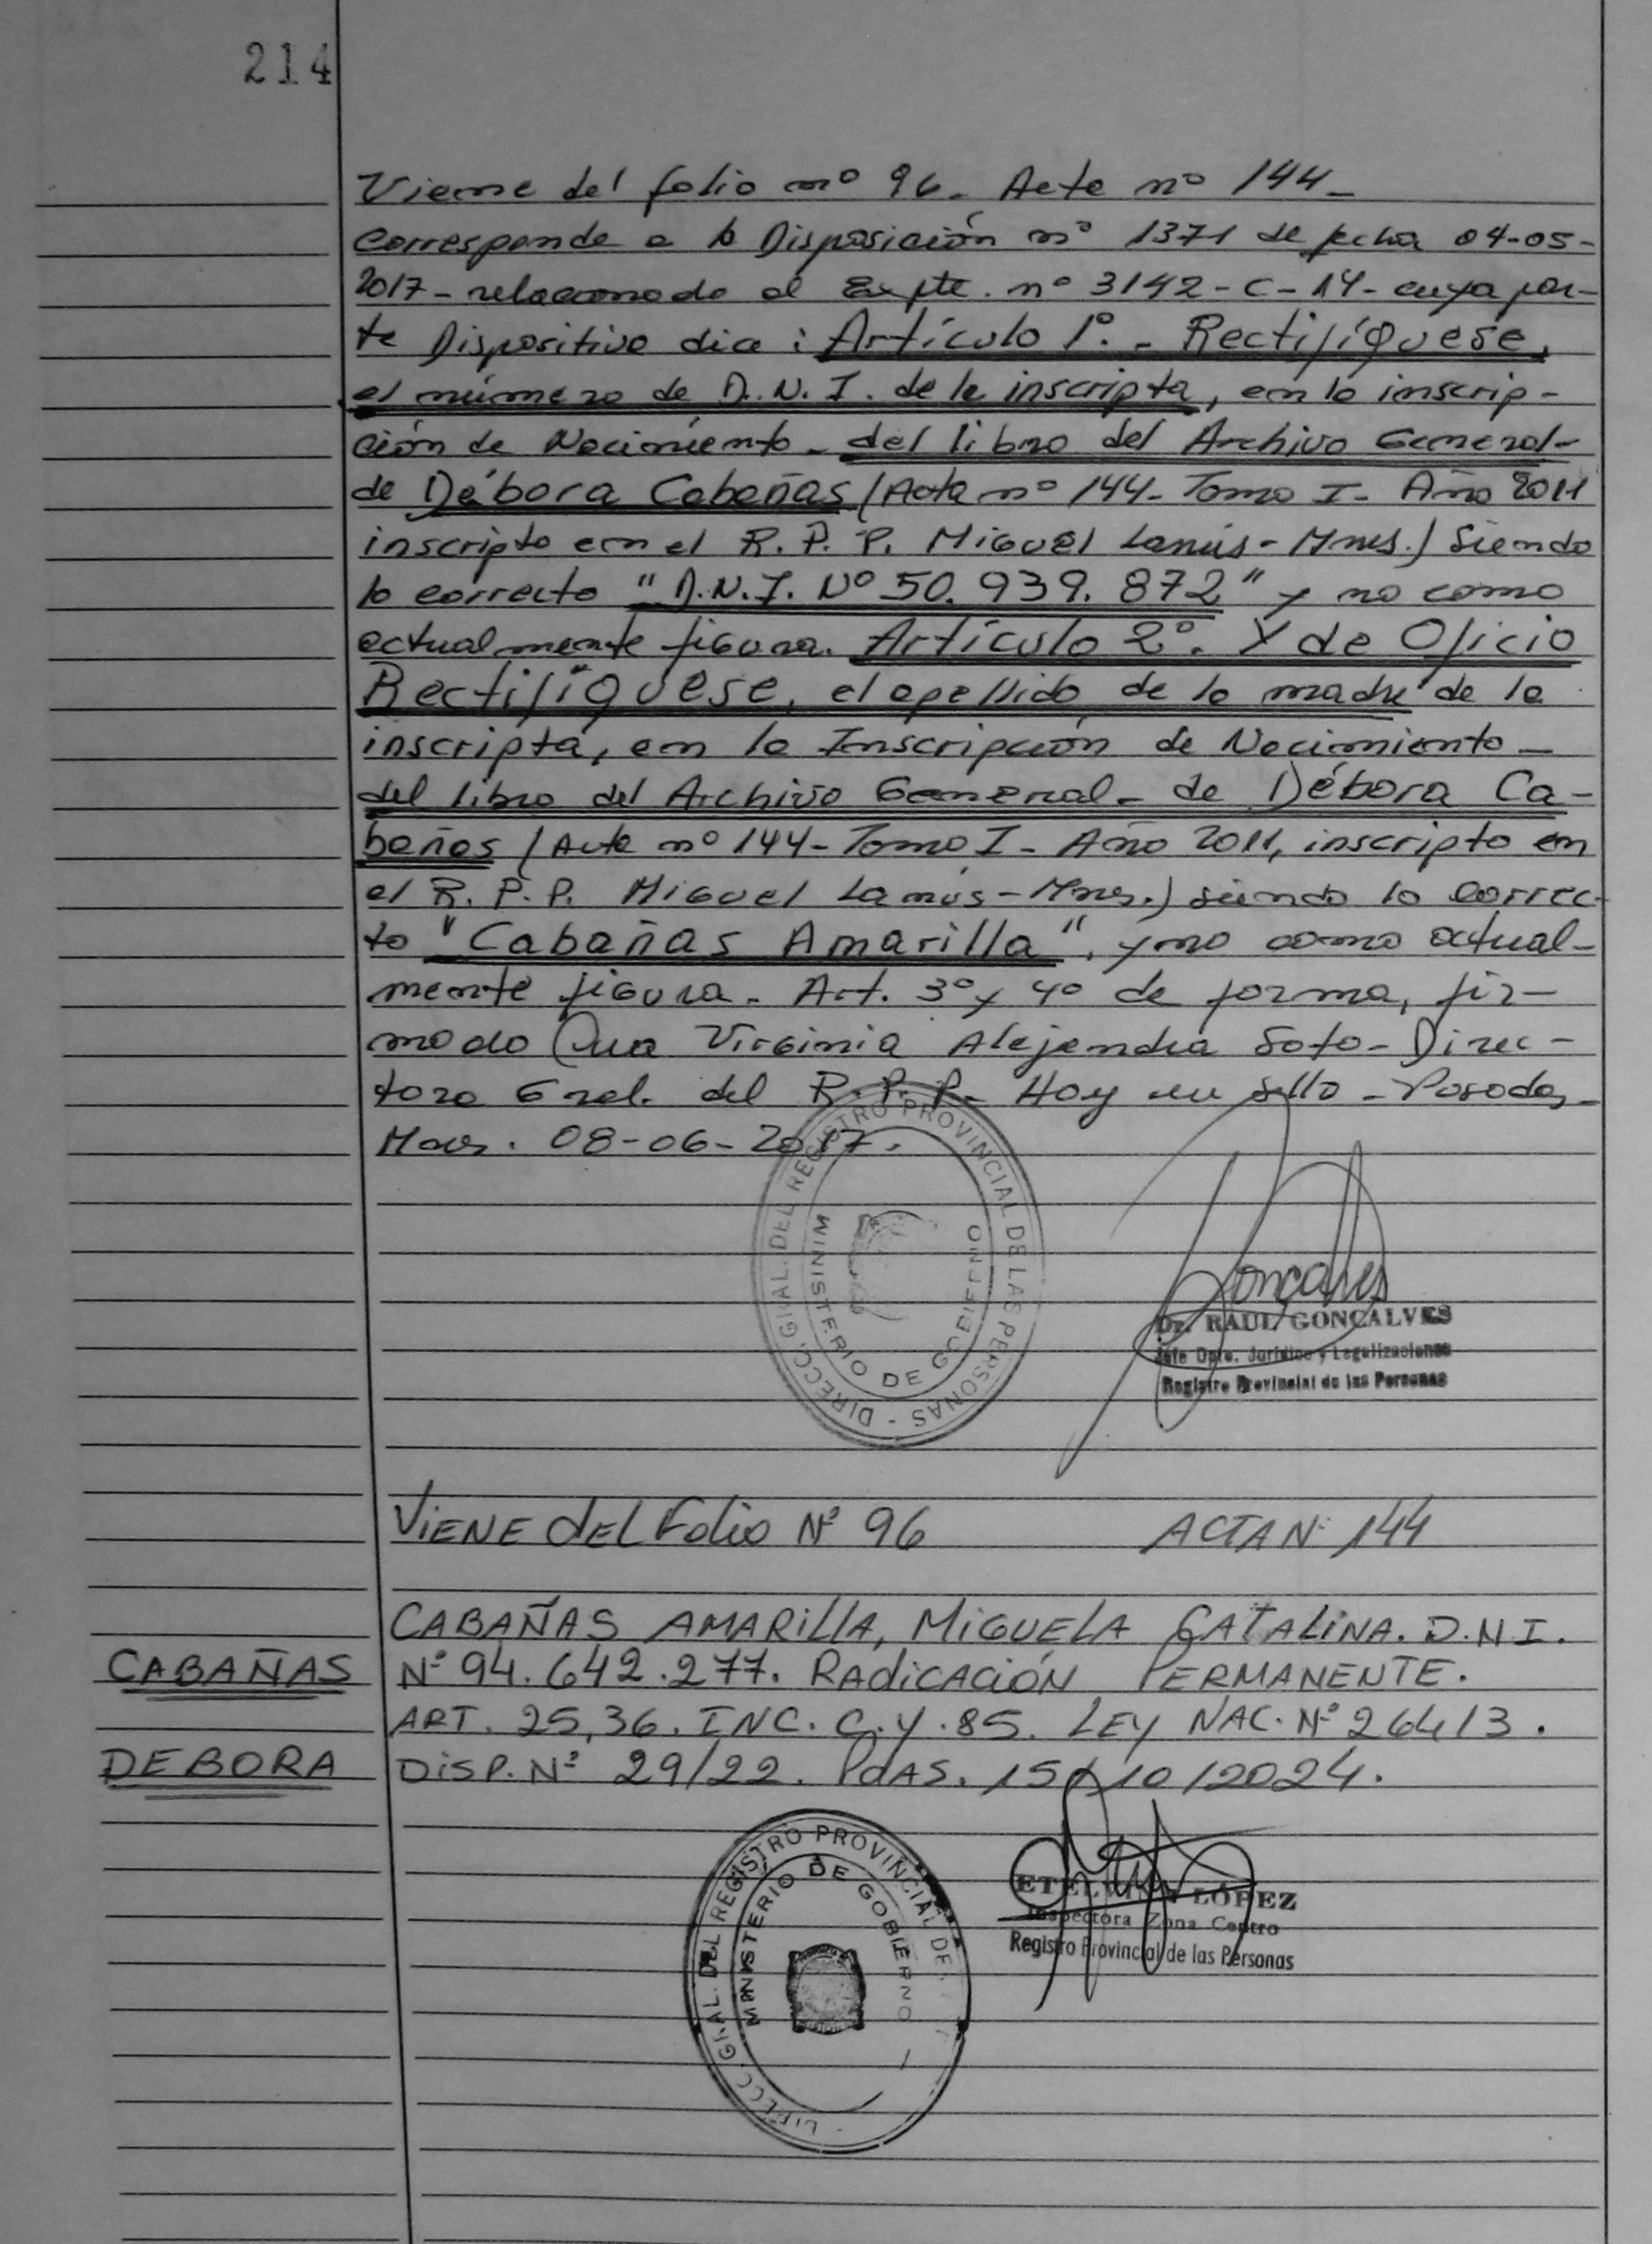 214
Viene del folio nº 96. Acta nº 144_
Corresponde a la Disposición nº 1371 de fecha 04-05-
2017- relacionado al Expte. nº 3142-C-14- cuya par-
te Dispositiva dice: Artículo 1º.- Rectifíquese,
el número de D.N.I. de la inscripta, en la inscrip-
ción de Nacimiento- del libro del Archivo General-
de Débora Cabañas (Acta nº 144- Tomo I- Año 2011
inscripto en el R.P.P. Miguel Lanús- Mnes.) Siendo
lo correcto "D.N.I. Nº 50.939.872" y no como
actualmente figura. Artículo 2º. Y de Oficio
Rectifíquese, el apellido de la madre de la
inscripta, en la Inscripción de Nacimiento-
del libro del Archivo General- de Débora Ca-
bañas (Acta nº 144- Tomo I- Año 2011, inscripto en
el R.P.P. Miguel Lanús- Mnes.) siendo lo correc-
to "Cabañas Amarilla", y no como actual-
mente figura. Art. 3º y 4º de forma, fir-
mado Virginia Alejandra Soto- Direc-
tora Gral. del R.P.P.- Hoy un sello - Posadas-
Mnes. 08-06-2017.
DIRECC. GRAL. DEL REGISTRO PROVINCIAL DE LAS PERSONAS -
MINISTERIO DE GOBIERNO
Goncalves
Dr. RAUL GONCALVES
Jefe Dpto. Jurídico y Legalizaciones
Registro Provincial de las Personas
VIENE DEL Folio Nº 96 ACTA Nº 144
CABAÑAS AMARILLA, MIGUELA CATALINA. D.N.I.
CABAÑAS Nº 94.642.277. RADICACIÓN PERMANENTE.
ART. 25, 36. INC. C. Y. 85. LEY NAC. Nº 26413.
DEBORA DISP. Nº 29/22. PDAS. 15/10/2024.
DIRECC. GRAL. DEL REGISTRO PROVINCIAL DE
MINISTERIO DE GOBIERNO
ETELVINA LÓPEZ
Inspectora Zona Centro
Registro Provincial de las Personas